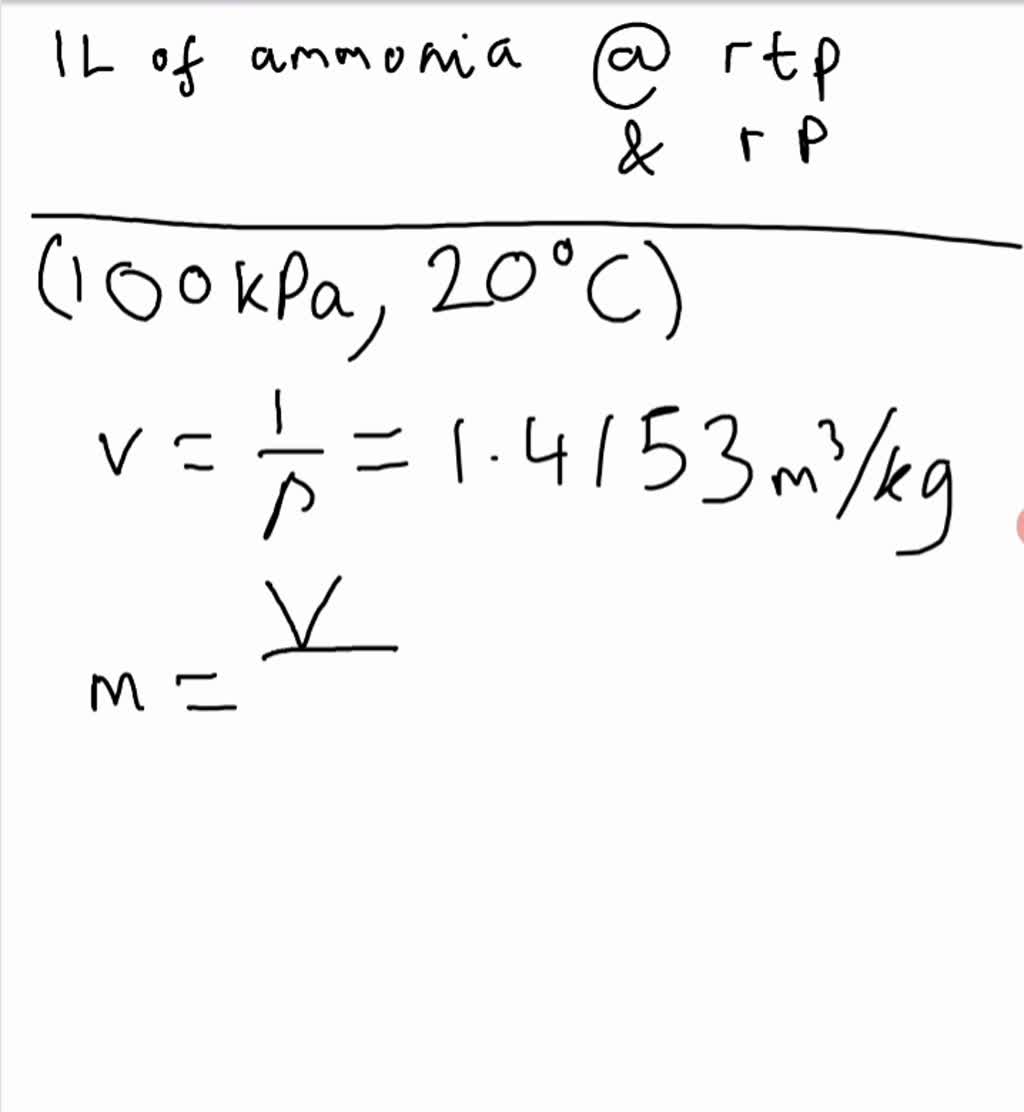 1L of ammonia @ rtp
& rP
(100kPa, 20°C)
v = 1/ρ = 1.4153 m³/kg
m = V